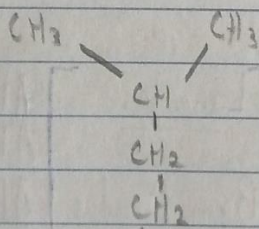 CH3 CH3
CH
CH2
CH2